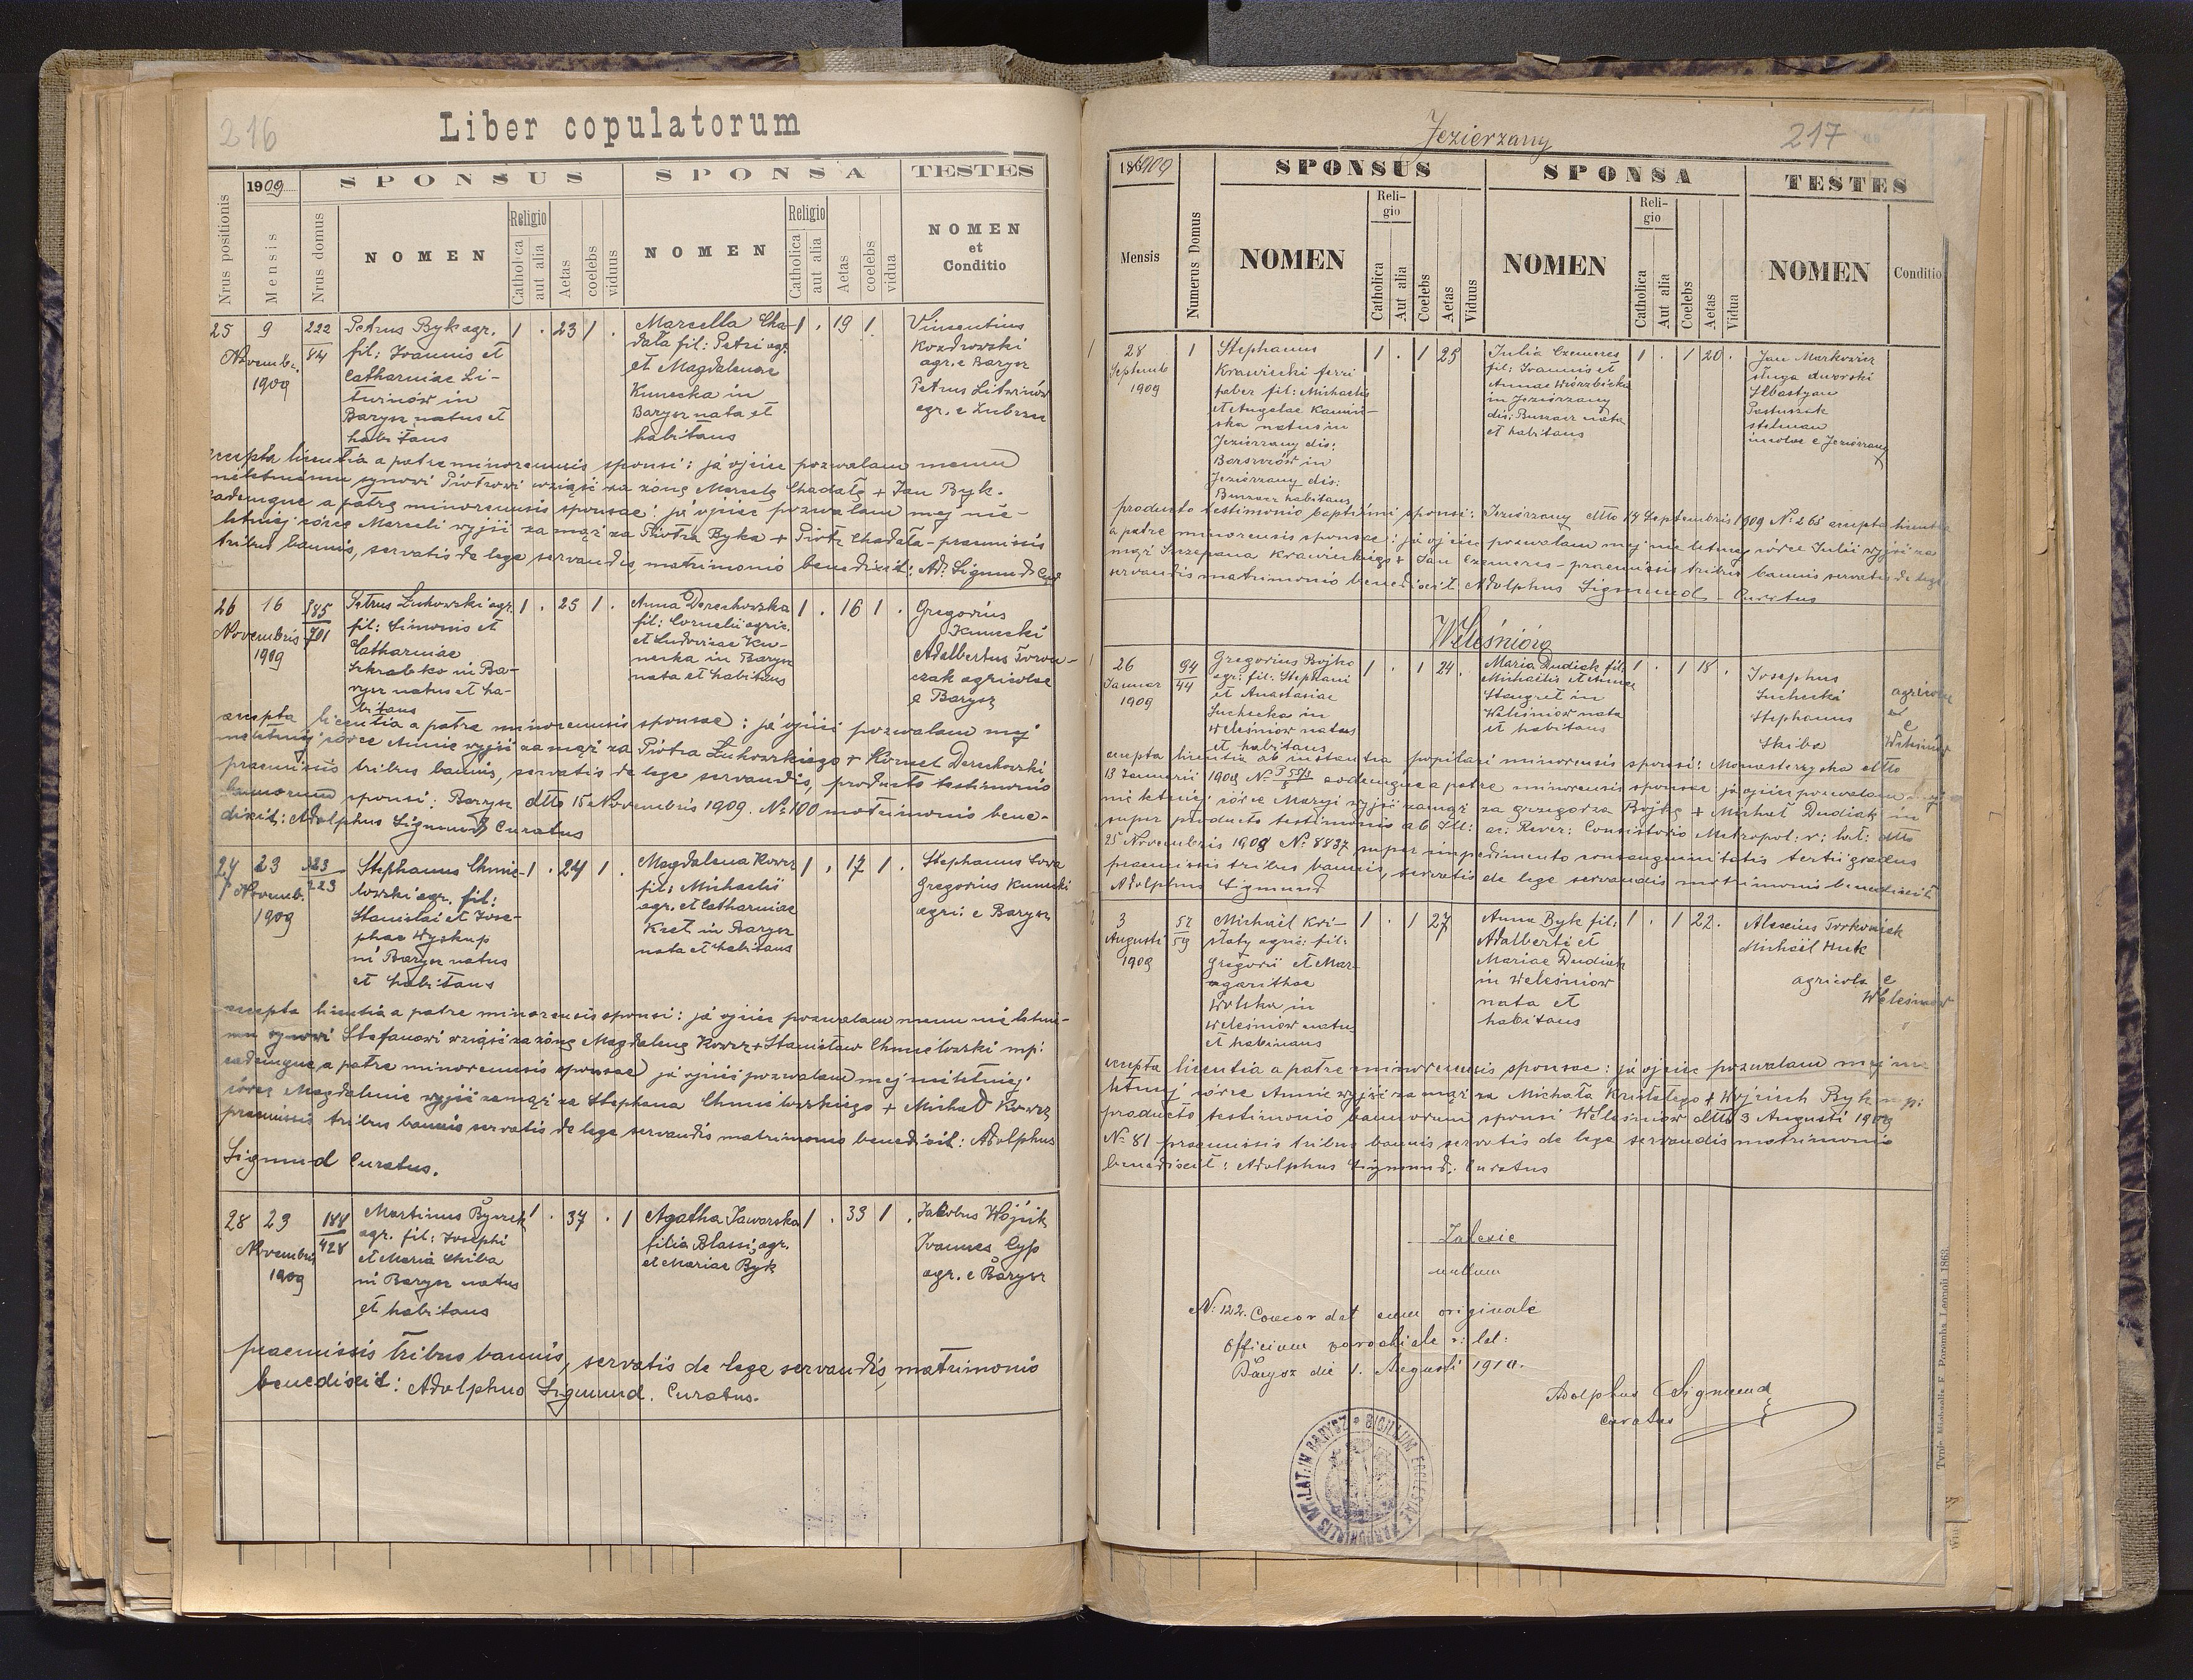 216
Liber copulatorum
Nrus positionis
1909
Mensis
Nrus domus
SPONSUS
NOMEN
Religio
Catholica
aut alia
Aetas
coelebs
viduus
SPONSA
NOMEN
Religio
Catholica
aut alia
Aetas
coelebs
vidua
TESTES
NOMEN
et
Conditio
25 9 Novembr. 1909
222
84
Petrus Byk agr.
fil: Joannis et
Catharinae Li-
twinów in
Barysz natus et
habitans
1 . 23 1 .
Marcella Cha-
data fil: Petri agr.
et Magdalenae
Kunecka in
Barysz nata et
habitans
1 . 19 1 .
Vincentius
Kozdrowski
agr. e Barysz
Petrus Litwinów
agr. e
accepta licentia a patre minorennis sponsi: ja ojciec pozwalam memu
nieletniemu synowi Piotrowi wziąść za żonę Marcelę Chadałę + Jan Byk.
eademque a patre minorennis sponsae: ja ojciec pozwalam mej nie-
letniej córce Marceli wyjść za mąż za Piotra Byka + Piotr Chadała - praemissis
tribus bannis, servatis de lege servandis matrimonio benedixit: Ad: Sigmund Cur
26 16 Novembris 1909
585
701
Petrus Żukowski agr.
fil: Simonis et
Catharinae
Skrabko in Ba-
rysz natus et ha-
bitans
1 . 25 1 .
Anna Derechowska
fil: Cornelii agric.
et Ludovicae Ku-
necka in Barysz
nata et habitans
1 . 16 1 .
Gregorius
Kunecki
Adalbertus
czak agricolae
e Barysz
accepta licentia a patre minorennis sponsae: ja ojciec pozwalam mej
nieletniej córce Annie wyjść za mąż za Piotra Żukowskiego + Kornel Derechowski
praemissis tribus bannis, servatis de lege servandis, producto testimonio
bannorum sponsi: Barysz dtto 15 Novembris 1909. No 100 matrimonio bene-
dixit: Adolphus Sigmund Curatus
27 23 Novemb. 1909
323
223
Stephanus Chmie-
lowski agr. fil:
Stanislai et Jose-
phae Wyskup
in Barysz natus
et habitans
1 . 24 1 .
Magdalena Kowcz
fil: Michaelis
agr. et Catharinae
Kret in Barysz
nata et habitans
1 . 17 1 .
Stephanus Sowa
Gregorius Kunecki
agric: e Barysz
accepta licentia a patre minorennis sponsi: ja ojciec pozwalam memu nieletnie-
mu synowi Stefanowi wziąść za żonę Magdalenę Kowcz + Stanisław Chmielowski mp:
eademque a patre minorennis sponsae ja ojciec pozwalam mej nieletniej
córce Magdalenie wyjść za mąż za Stephana Chmielowskiego + Michał Kowcz
praemissis tribus bannis servatis de lege servandis matrimonio benedixit: Adolphus
Sigmund Curatus.
28 23 Novembris 1909
188
428
Martinus
agr. fil: Josephi
et Maria Skiba
in Barysz natus
et habitans
1 . 37 . 1
Agatha Jaworska
filia Blassi, agr.
et Mariae Byk
1 . 33 1 .
Jakobus Wójcik
Joannes Cyp
agr. e Barysz
praemissis tribus bannis, servatis de lege servandis, matrimonio
benedixit: Adolphus Sigmund. Curatus.
Jezierzany
217
1909
Mensis
Numerus Domus
SPONSUS
NOMEN
Reli-
gio
Catholica
Aut alia
Coelebs
Aetas
Viduus
SPONSA
NOMEN
Reli-
gio
Catholica
Aut alia
Coelebs
Aetas
Vidua
TESTES
NOMEN
Conditio
1 28 Septemb 1909
1
Stephanus
Krawiecki ferri
faber fil: Michaelis
et Angelae Kamin-
ska natus in
Jezierzany dis:
Borszczów in
Jezierzany dis:
Buczacz habitans
1 . 1 25
Julia Czemeres
fil: Joannis et
Annae Wierzbicka
in Jezierzany
dis: Buczacz nata
et habitans
1 . 1 20 .
Jan Markowicz
sługa dworski
Sebastyan
Pastuszak
stelmach
incolae e Jezierzany
producto testimonio baptismi sponsi: Jezierzany dtto 19 Septembris 1909 No 265 accepta licentia
a patre minorennis sponsae: ja ojciec pozwalam mej nieletniej córce Julii wyjść za
mąż Szczepana Krawieckiego + Jan Czemeres - praemissis tribus bannis servatis de lege
servandis matrimonio benedixit Adolphus Sigmund - Curatus
Weleśniów
1 26 Januar 1909
94
44
Gregorius Bojko
agr: fil: Stephani
et Anastasiae
Suchecka in
Weleśniow natus
et habitans
1 . 1 24 .
Maria Dudiak fil:
Michaelis et Annae
Staugret in
Weleśniow nata
et habitans
1 . 1 18 .
Josephus
Suchecki
Stephanus
Skiba
agricolae
e
Weleśniów
accepta licentia ab instantia pupilari minorennis sponsi: Monasterzyska dtto
13 Januarii 1909 No eademque a patre minorennis sponsae ja ojciec pozwalam mej
nieletniej córce Maryi wyjść za mąż za Grzegorza Bojkę + Michał Dudiak in
super producto testimonio ab Ill: ac: Rever: Consistorio Metropol: r: lat: dtto
25 Novembris 1908 No 8837 super impedimento consanguinitatis tertii gradus
praemissis tribus bannis, servatis de lege servandis matrimonio benedixit
Adolphus Sigmund
2 3 Augusti 1909
57
59
Michaël Kri-
staty agric: fil:
Gregorii et Mar-
garithae
Wolska in
Weleśniow natus
et habitans
1 . 1 27
Anna Byk fil:
Adalberti et
Mariae Dudiak
in Weleśniow
nata et
habitans
1 . 1 22 .
Alexius
Michaël Huk
agricolae e
Weleśniow
accepta licentia a patre minorennis sponsae: ja ojciec pozwalam mej nie
letniej córce Annie wyjść za mąż za Michała Kristatego + Wojciech Byk mp:
producto testimonio bannorum sponsi Weleśniow dtto 3 Augusti 1909
No 81 praemissis tribus bannis servatis de lege servandis matrimonio
benedixit: Adolphus Sigmund. Curatus
Zalesie
nullum
No: 122. Concordat cum originale
Officium parochiale r: lat:
Barysz die 1. Augusti 1910.
Adolphus Sigmund
Curatus
SIGILLUM ECCLESIAE PAROCHIALIS RIT. LAT. IN BARYSZ
Typis Michaelis F. Poremba Leopoli 1863.